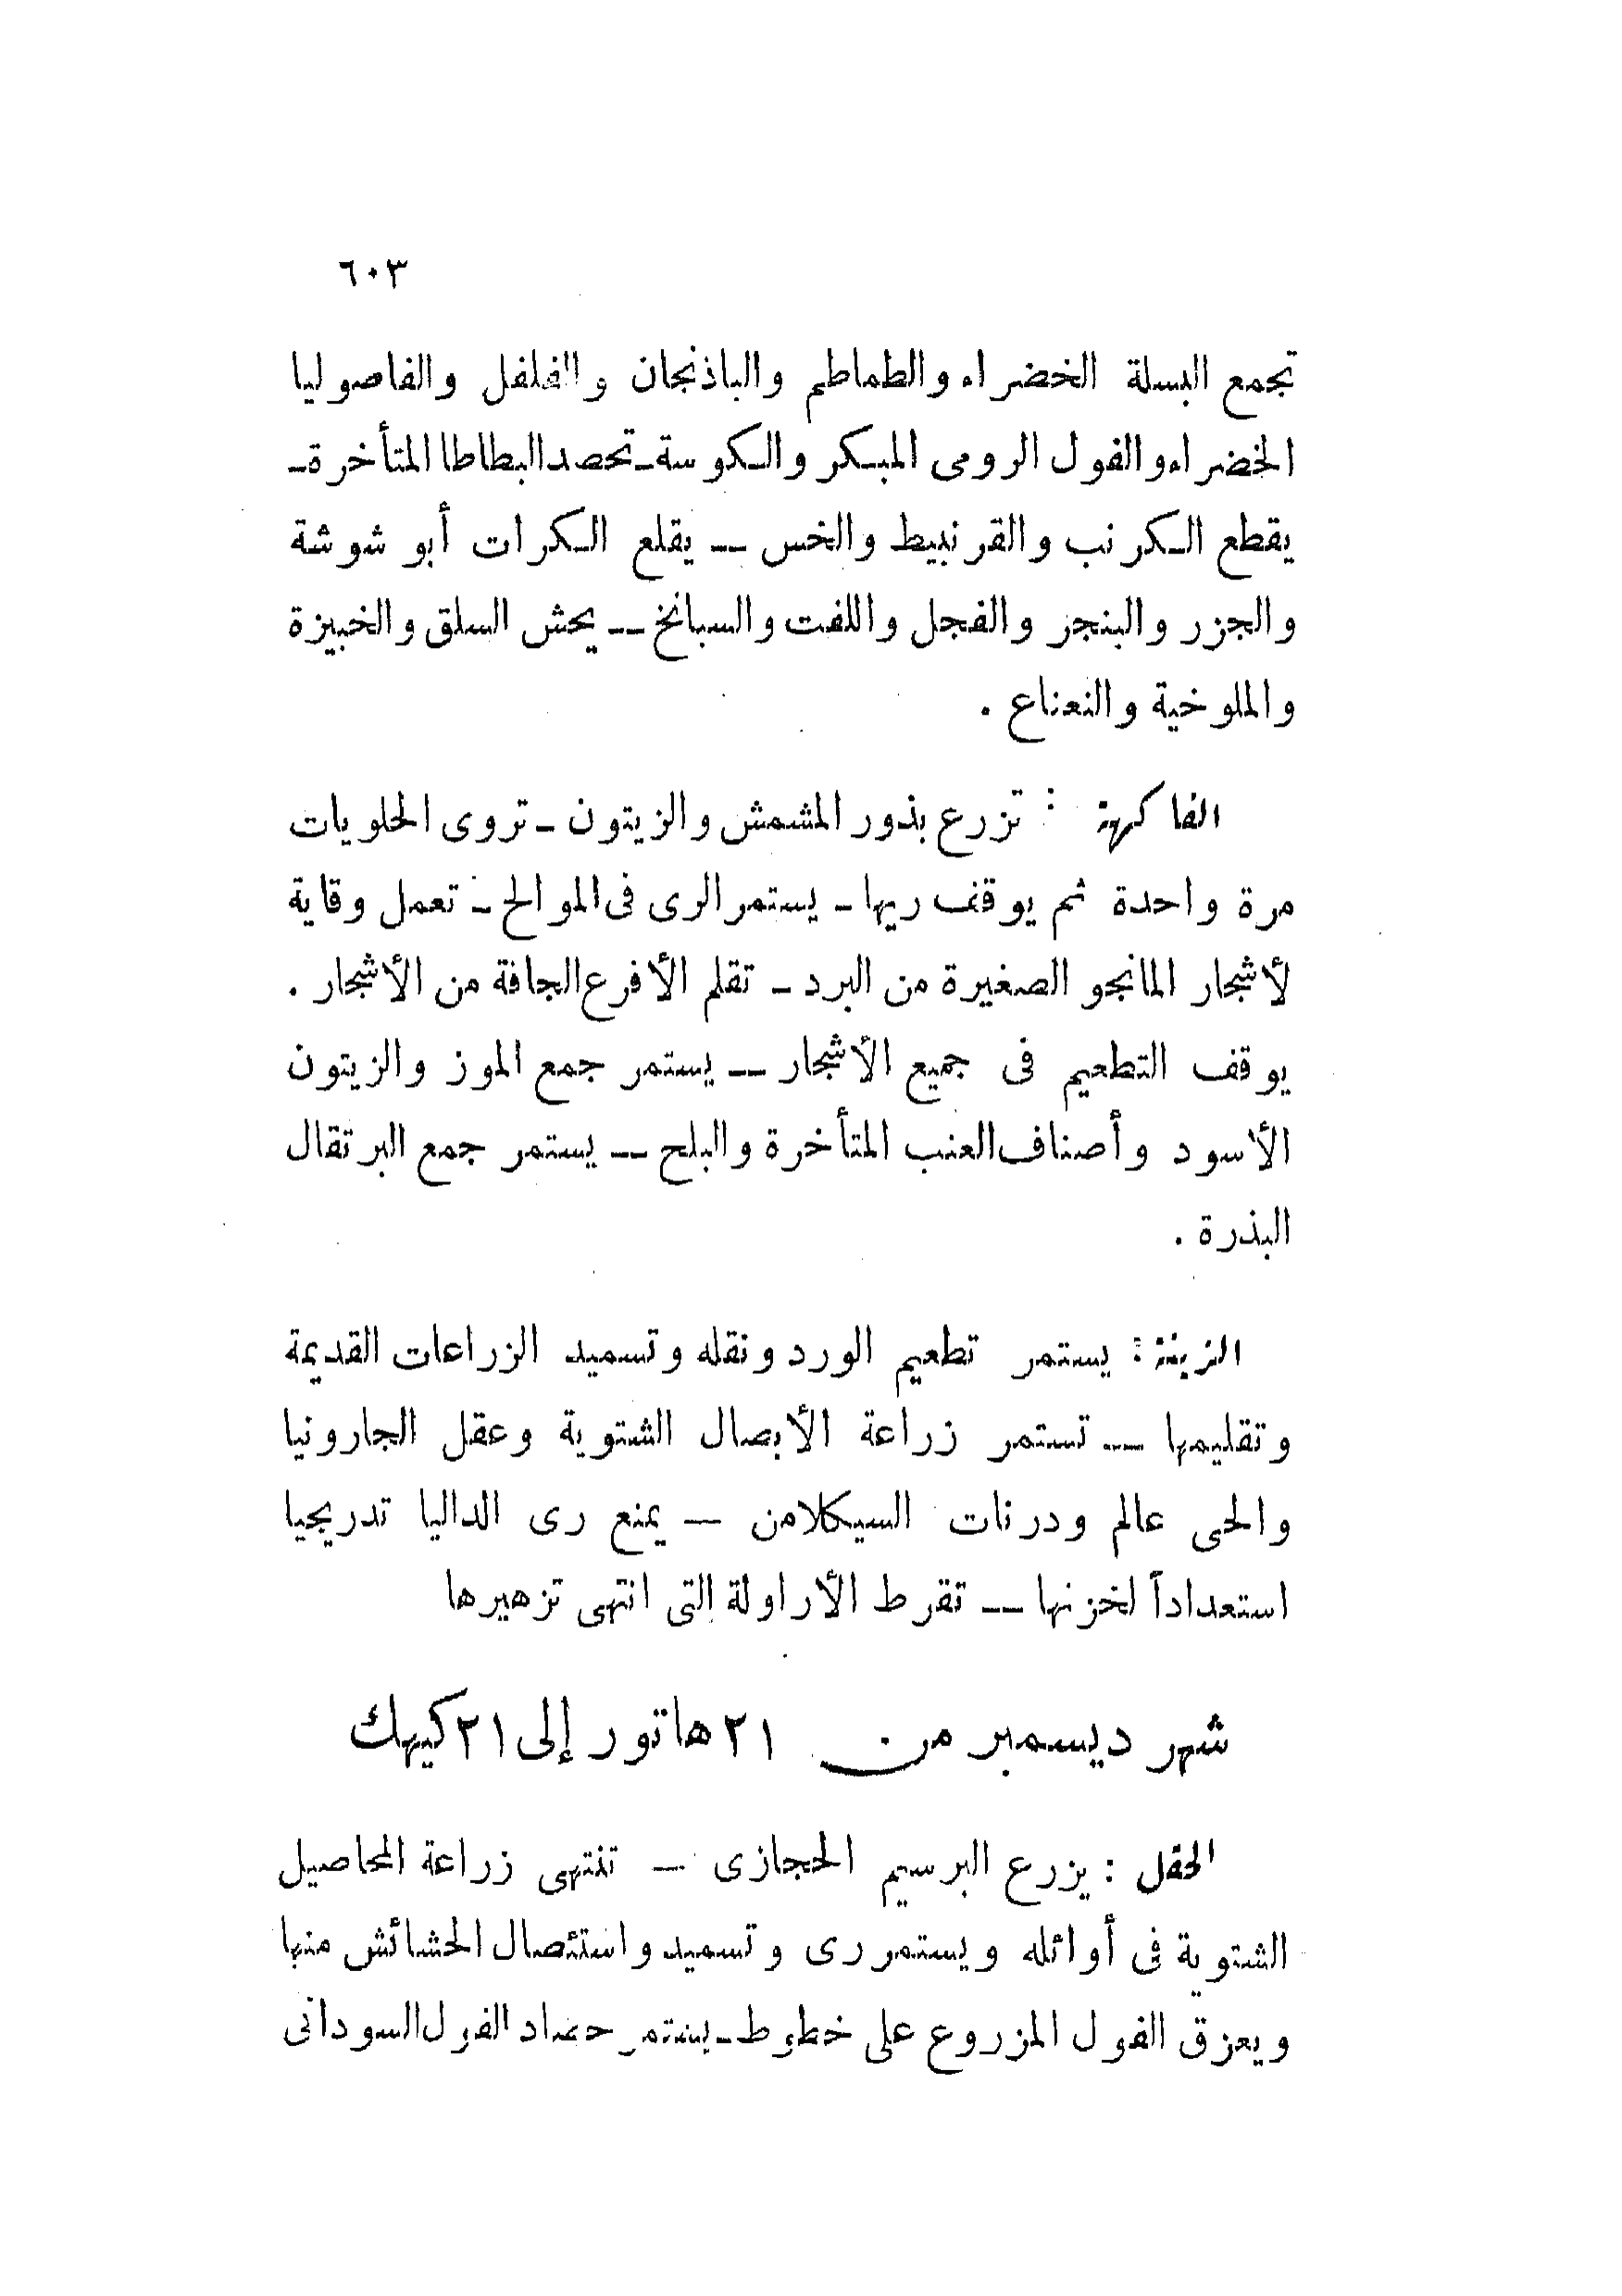 ٦٠٣
تجمع البسلة الخضراء والطماطم والباذنجان والفلفل والفاصوليا
الخضراء والفول الرومى المبكر والكوسة ـ تحصد البطاطا المتأخرة ـ
يقطع الكرنب والقرنبيط والخس ــ يقلع الكرات أبو شوشة
والجزر والبنجر والفجل واللفت والسبانخ ــ يحش السلق والخبيزة
والملوخية والنعناع .
الفاكهة : تزرع بذور المشمش والزيتون ـ تروى الحلويات
مرة واحدة ثم يوقف ريها ـ يستمر الرى فى الموالح ـ تعمل وقاية
لأشجار المانجو الصغيرة من البرد ـ تقلم الأفرع الجافة من الأشجار .
يوقف التطعيم فى جميع الأشجار ــ يستمر جمع الموز والزيتون
الأسود وأصناف العنب المتأخرة والبلح ــ يستمر جمع البرتقال
البذرة .
الزينة : يستمر تطعيم الورد ونقله وتسميد الزراعات القديمة
وتقليمها ــ تستمر زراعة الأبصال الشتوية وعقل الجارونيا
والحى عالم ودرنات السيكلامن ــ يمنع رى الداليا تدريجيا
استعداداً لخزنها ــ تقرط الأراولة التى انتهى تزهيرها
شهر ديسمبر من ٢١ هاتور إلى ٢١ كيهك
الحقل : يزرع البرسيم الحجازى ــ تنتهى زراعة المحاصيل
الشتوية فى أوائله ويستمر رى وتسميد واستئصال الحشائش منها
ويعزق الفول المزروع على خطوط ـ يستمر حصاد الفول السودانى